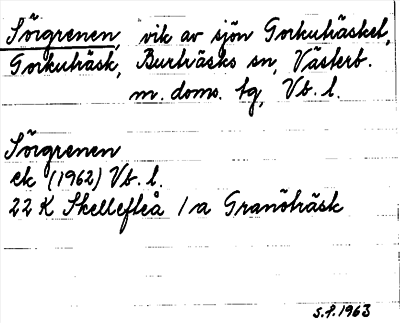 Sörgrenen, vik av sjön Gorkuträsket,
Gorkuträsk, Burträsks sn, Västerb.
m. doms. tg, Vb. l.
Sörgrenen
ek (1962) Vb. l.
22 K Skellefteå 1a Granöträsk
S.P. 1963